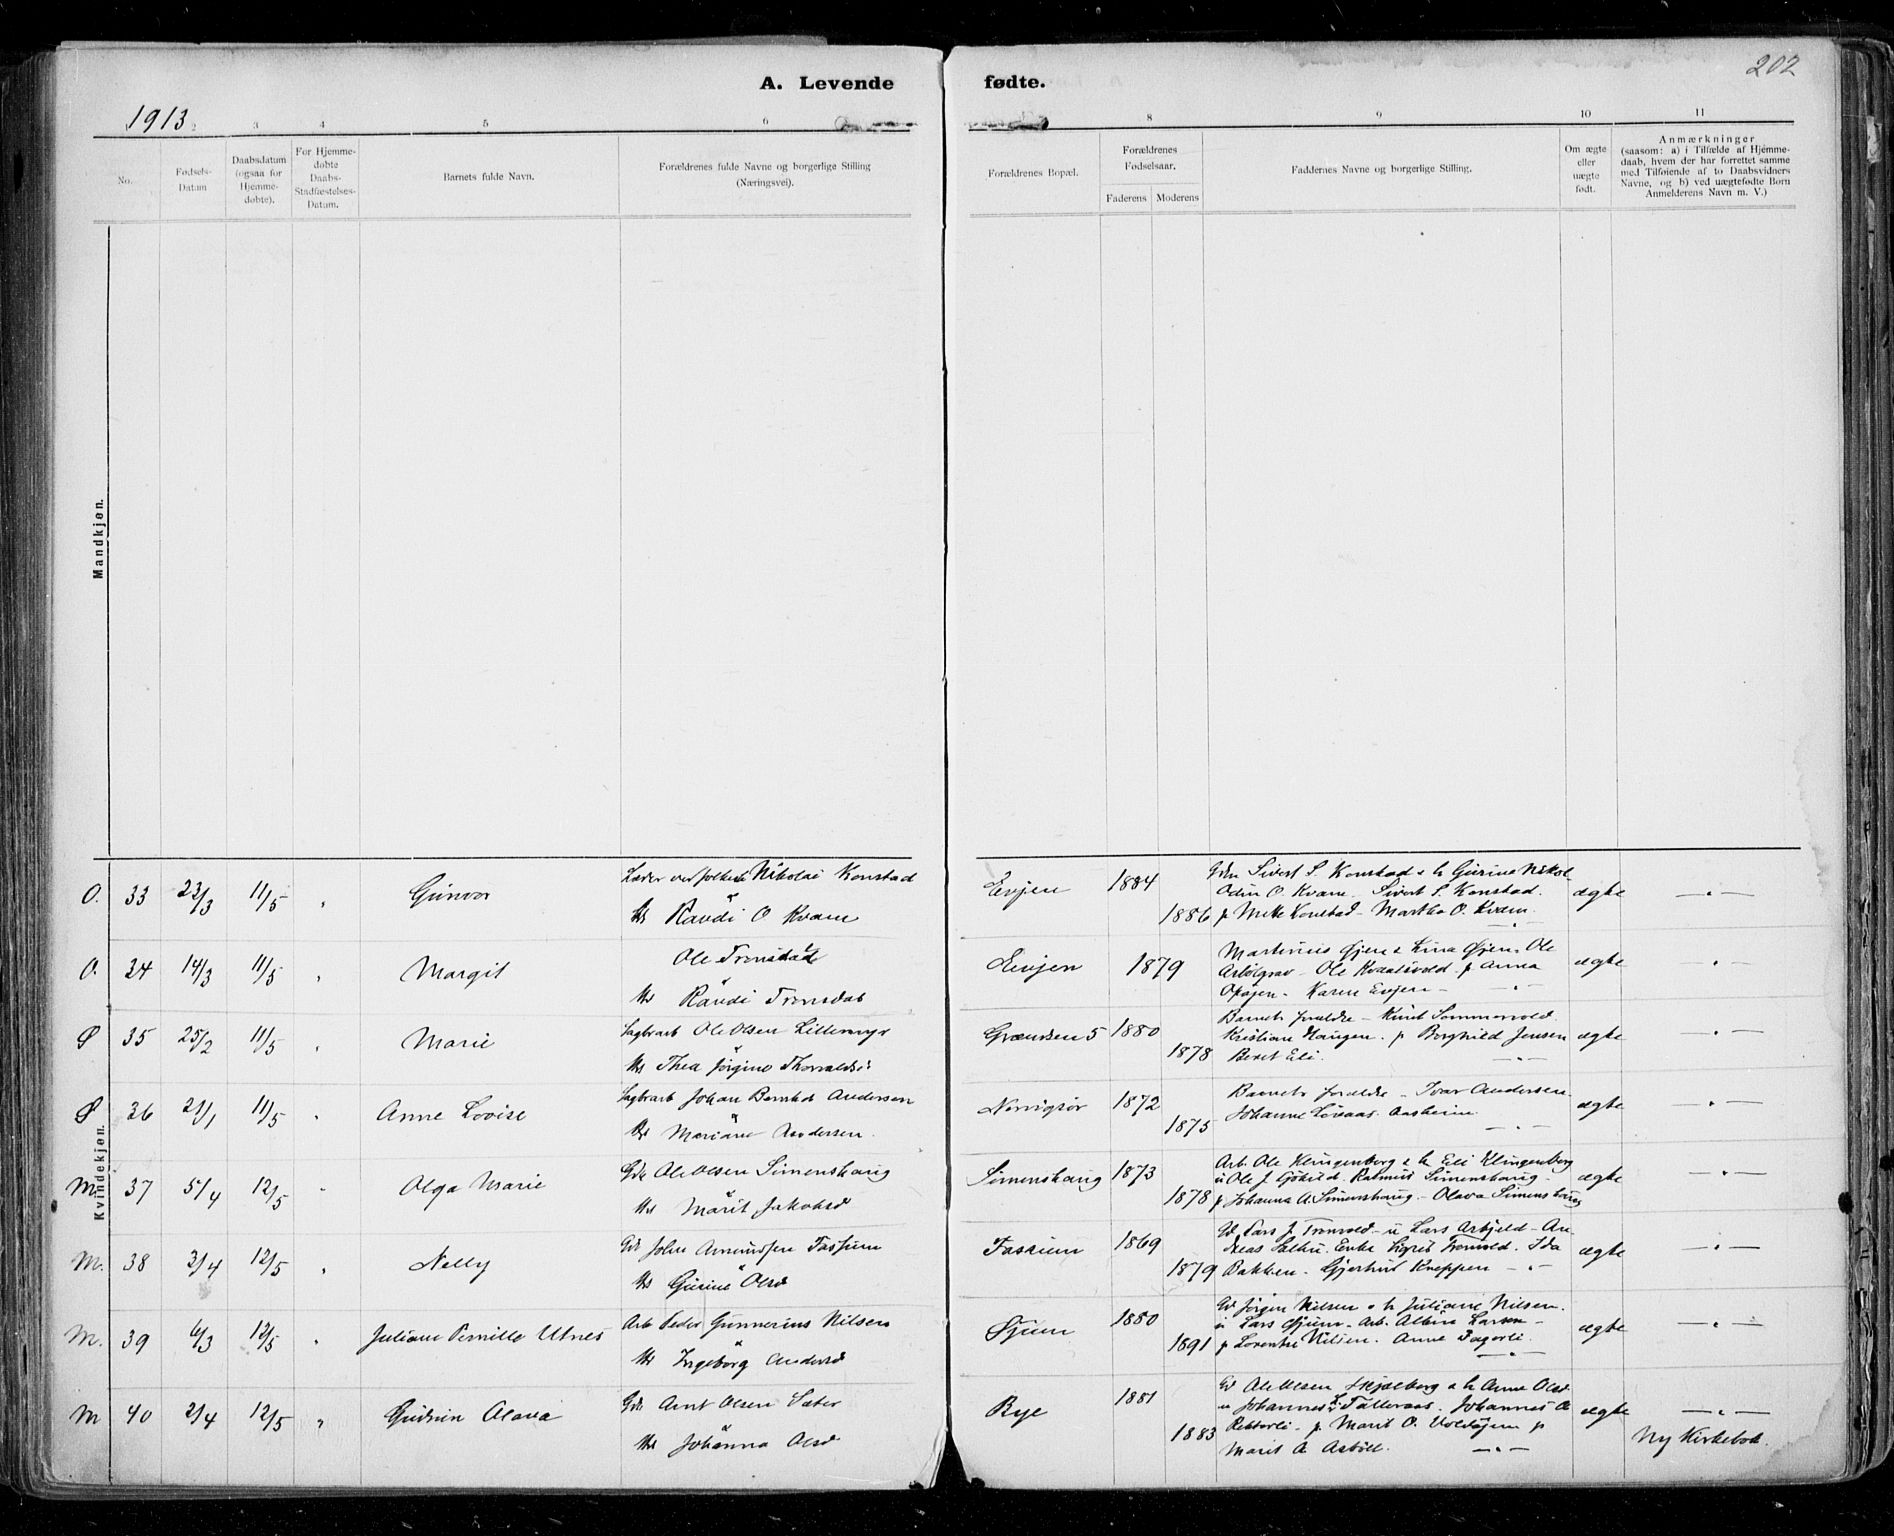 202
A. Levende fødte.
1913
2 3 4 5 6 8 9 10 11
No.
Fødsels-
Datum
Daabsdatum
(ogsaa for
Hjemme-
døbte).
For Hjemme-
døbte
Daabs-
Stadfæstelses-
Datum.
Barnets fulde Navn.
Forældrenes fulde Navne og borgerlige Stilling
(Næringsvei).
Forældrenes Bopæl.
Forældrenes
Fødselsaar.
Faderens Moderens
Faddernes Navne og borgerlige Stilling.
Om ægte
eller
uægte
født.
Anmærkninger
(saasom: a) i Tilfælde af Hjemme-
daab, hvem der har forrettet samme
med Tilføiende af to Daabsvidners
Navne, og b) ved uægtefødte Børn
Anmelderens Navn m. V.)
Mandkjøn.
Kvindekjøn.
O. 33 23/3 11/5 " Gunvor
Nikolai Konstad
Randi O Kvam
Evjen 1884
1886
Sivert S. Konstad & h Gurine
Odin O. Kvam Sivert S. Konstad.
Konstad - Martha O. Kvam
ægte — " —
O. 34 14/3 11/5 " Margit
Ole Tronsdal
Hs Randi Tronsdal
Evjen 1879
Martinius Øjen & Lina Øjen. Ole
Ole p Anna
Karen Evjen - — " —
ægte — " —
Ø 35 25/2 11/5 " Marie
Sagbrarb Ole Olsen Lillemyr
Hs Thea Jørgine
Grændsen 5 1880
1878
Barnets forældre - Knut Sommervold.
Kristian Haugen. p Borghild Jensen
Beret Eli. — " —
ægte — " —
Ø 36 21/1 11/5 " Anne Lovise
Sagbrarb Johan Andersen
Hs Mariane Andersen.
1872
1875
Barnets forældre - Ivar Andersen.
Johanne Aasheim — " —
ægte — " —
M. 37 5/4 12/5 " Olga Marie
Gdr Ole Olsen Simenshaug
Hs Marit Jakobsd
Simenshaug 1873
1878
Arb. Ole Klingenberg & h Eli Klingenberg
u Ole J. Simenshaug -
p Johanna A. Simenshaug - Olava Simenshaug
ægte — " —
M. 38 3/4 12/5 " Nelly
Gdr John Fossum
Hs Gurine Olsd
Fossum 1869
1879
Lars J. Tronvold - u Lars An
dreas Enke Sigrid Tronvold. Ida
Bakken - Gjertrud Kneppen — " —
ægte — " —
M. 39 6/3 12/5 " Juliane Pernille Utnes
Arb Peder Gunnerius Nilsen
Hs Ingeborg Andersd
Øyum 1880
1891
Jørgen Nilsen & h Juliane Nilsen.
u Lars Øyum - Arb. Albin Larsen -
p Nilsen. Anne Fagerli.
— " —
ægte — " —
M 40 2/4 12/5 " Gudrun Olava
Gdr Arnt Olsen Sæter
Hs Johanna Olsd
Rye 1881
1883
Ole Olsen & h Anne Olsd
u Johannes Johannes O
p Marit O. p
Marit A. — " —
ægte — " —
Ny Kirkebok.